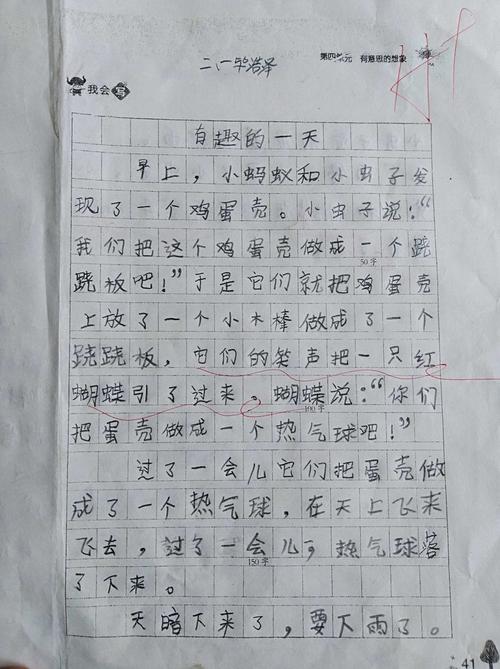 第四单元 有意思的想象
二、一 毕浩泽
我会写
自趣的一天
早上，小蚂蚁和小虫子发
现了一个鸡蛋壳。小虫子说：“
我们把这个鸡蛋壳做成一个跷
50字
跷板吧！”于是它们就把鸡蛋壳
上放了一个小木棒做成了一个
跷跷板，它们的笑声把一只红
蝴蝶引了过来。蝴蝶说：“你们
100字
把蛋壳做成一个热气球吧！”
过了一会儿它们把蛋壳做
成了一个热气球，在天上飞来
飞去，过了一会儿，热气球落
150字
了下来。
天暗下来了，要下雨了。
41